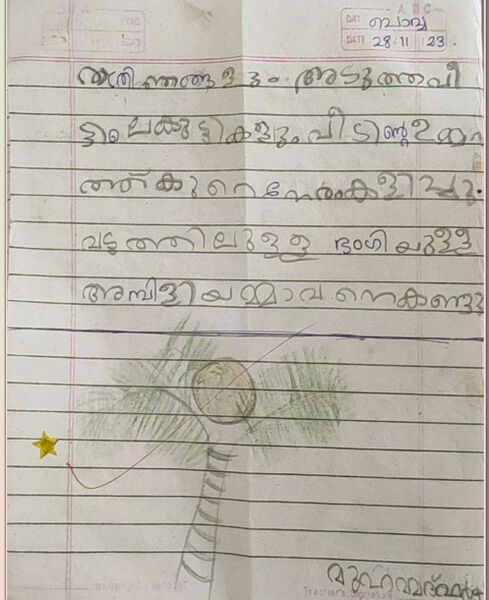 A B C
DAY ബാവു
DATE 28/11/23
രാത്രി ഞങ്ങളും അടുത്തവീ
ട്ടിലെകുട്ടികളും വീടിന്റെ ഉമ്മറ
ത്ത് കുറെ നേരംകളിച്ചു.
വട്ടത്തിലുള്ള ഭംഗിയുള്ള
അമ്പിളിയമ്മാവനെകണ്ടു
Teacher's Signature